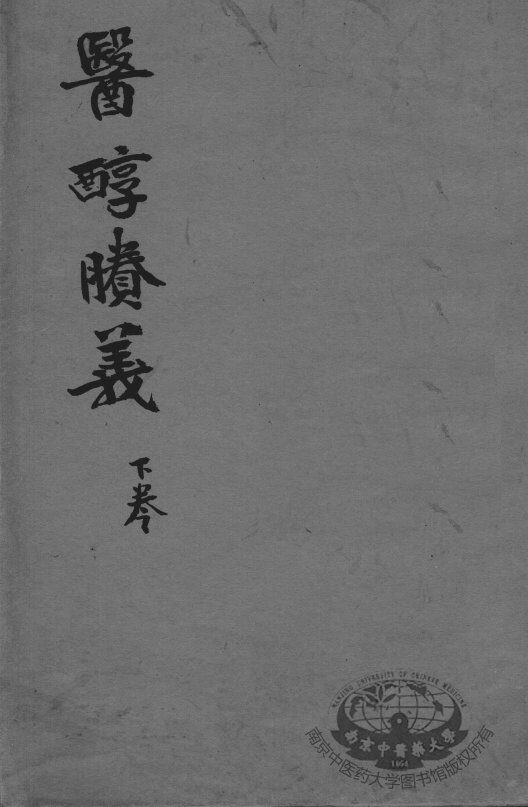 醫醇賸義
下卷
NANJING UNIVERSITY OF CHINESE MEDICINE
南京中醫藥大學
1954
南京中医药大学图书馆版权所有